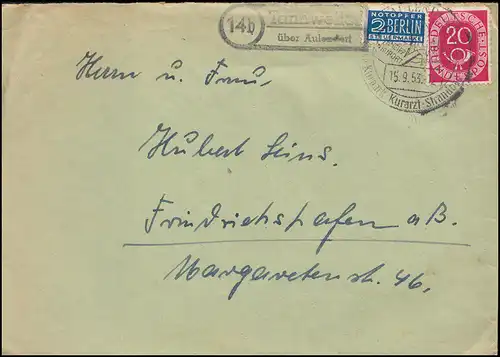 14b
Tannweiler
über Aulendorf
NOTOPFER
2 BERLIN
STEUERMARKE
DEUTSCHE POST
20
15.9.53
Kurarzt · Strandbad
Herrn u. Frau,
Hubert Seins.
Friedrichshafen a B.
Margaretenstr. 46,